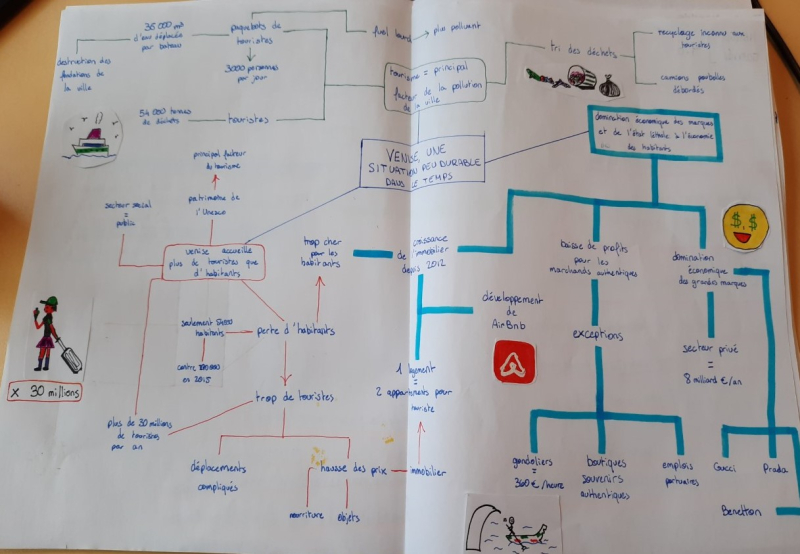 36 000 m³
d'eau déplacée
par bateau
paquebots de
touristes
fuel lourd
plus polluant
3000 personnes
par jour
destruction des
fondations de
la ville
54 000 tonnes
de déchets
touristes
tourisme = principal
facteur de la pollution
de la ville
tri des déchets
recyclage inconnu aux
touristes
camions poubelles
débordés
domination économique des marques
et de l'état
à l'économie
des habitants
VENISE, UNE
SITUATION PEU DURABLE
DANS LE TEMPS
principal facteur
du tourisme
patrimoine de
l'Unesco
secteur social
=
public
venise accueille
plus de touristes que
d'habitants
trop cher
pour les
habitants
croissance
de l'immobilier
depuis 2012
baisse de profits
pour les
marchands authentiques
domination
économique
des grandes marques
développement
de
AirBnb
seulement
habitants
contre
en 2015
perte d'habitants
exceptions
secteur privé
=
8 milliard €/an
x 30 millions
plus de 30 millions
de touristes
par an
trop de touristes
1 logement
=
2 appartements pour
touriste
déplacements
compliqués
hausse des prix
immobilier
nourriture
objets
gondoliers
=
360 €/heure
boutiques
souvenirs
authentiques
emplois
portuaires
Gucci
Prada
Benetton